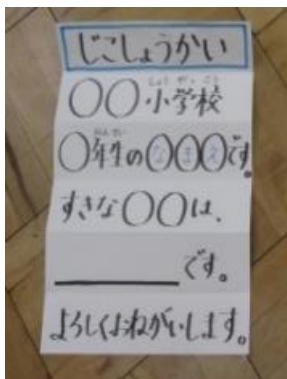 じこしょうかい
〇〇小学校
〇年生の〇〇〇です。
すきな〇〇は、
＿＿＿＿＿です。
よろしくおねがいします。